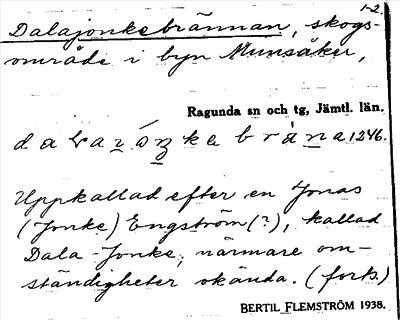 1-2.
Dalajonkebrännan, skogs-
område i byn Munsåker,
Ragunda sn och tg, Jämtl. län.
1246.
Uppkallad efter en Jonas
(Jonke) Engström (?), kallad
Dala-Jonke, närmare om-
ständigheter okända. (forts.)
BERTIL FLEMSTRÖM 1938.